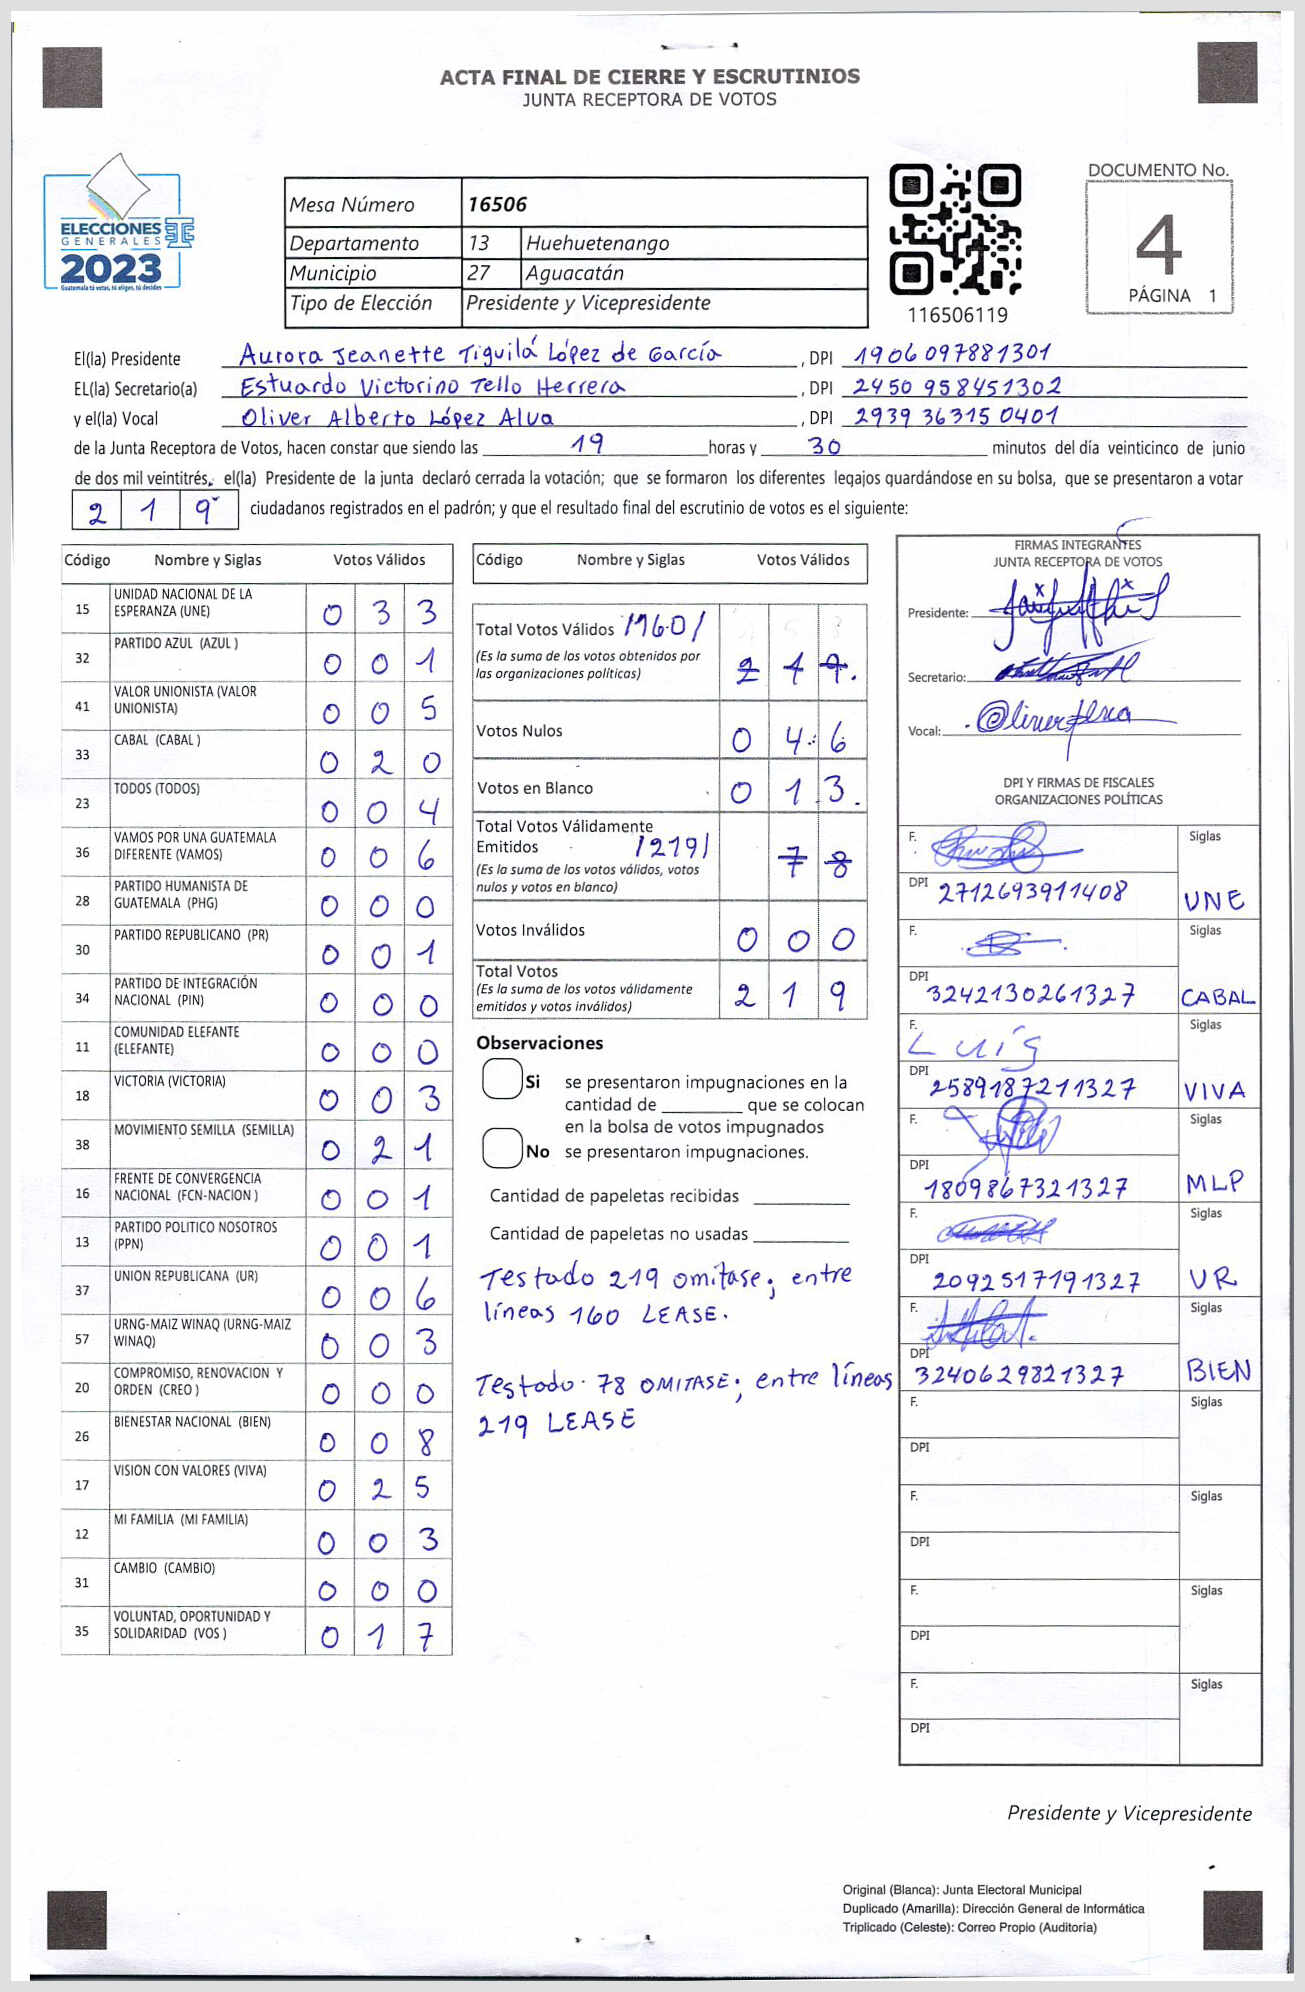 ACTA FINAL DE CIERRE Y ESCRUTINIOS
JUNTA RECEPTORA DE VOTOS
ELECCIONES
GENERALES
2023
Guatemala tú votas, tú eliges, tú decides
Mesa Número 16506
Departamento 13 Huehuetenango
Municipio 27 Aguacatán
Tipo de Elección Presidente y Vicepresidente
116506119
DOCUMENTO No.
4
PÁGINA 1
El(la) Presidente Aurora Jeanette Tiguilá López de García, DPI 1906 09788 1301
EL(la) Secretario(a) Estuardo Victorino Tello Herrera, DPI 2450 95845 1302
y el(la) Vocal Oliver Alberto López Alva, DPI 2939 36315 0401
de la Junta Receptora de Votos, hacen constar que siendo las 19 horas y 30 minutos del día veinticinco de junio
de dos mil veintitrés, el(la) Presidente de la junta declaró cerrada la votación; que se formaron los diferentes legajos guardándose en su bolsa, que se presentaron a votar
2 1 9 ciudadanos registrados en el padrón; y que el resultado final del escrutinio de votos es el siguiente:
Código Nombre y Siglas Votos Válidos
15 UNIDAD NACIONAL DE LA ESPERANZA (UNE) 0 3 3
32 PARTIDO AZUL (AZUL ) 0 0 1
41 VALOR UNIONISTA (VALOR UNIONISTA) 0 0 5
33 CABAL (CABAL ) 0 2 0
23 TODOS (TODOS) 0 0 4
36 VAMOS POR UNA GUATEMALA DIFERENTE (VAMOS) 0 0 6
28 PARTIDO HUMANISTA DE GUATEMALA (PHG) 0 0 0
30 PARTIDO REPUBLICANO (PR) 0 0 1
34 PARTIDO DE INTEGRACIÓN NACIONAL (PIN) 0 0 0
11 COMUNIDAD ELEFANTE (ELEFANTE) 0 0 0
18 VICTORIA (VICTORIA) 0 0 3
38 MOVIMIENTO SEMILLA (SEMILLA) 0 2 1
16 FRENTE DE CONVERGENCIA NACIONAL (FCN-NACION ) 0 0 1
13 PARTIDO POLITICO NOSOTROS (PPN) 0 0 1
37 UNION REPUBLICANA (UR) 0 0 6
57 URNG-MAIZ WINAQ (URNG-MAIZ WINAQ) 0 0 3
20 COMPROMISO, RENOVACION Y ORDEN (CREO ) 0 0 0
26 BIENESTAR NACIONAL (BIEN) 0 0 8
17 VISION CON VALORES (VIVA) 0 2 5
12 MI FAMILIA (MI FAMILIA) 0 0 3
31 CAMBIO (CAMBIO) 0 0 0
35 VOLUNTAD, OPORTUNIDAD Y SOLIDARIDAD (VOS ) 0 1 7
Código Nombre y Siglas Votos Válidos
Total Votos Válidos /160/
(Es la suma de los votos obtenidos por
las organizaciones políticas) 2 1 9.
Votos Nulos 0 4 6
Votos en Blanco 0 1 3.
Total Votos Válidamente
Emitidos /219/
(Es la suma de los votos válidos, votos
nulos y votos en blanco) 7 8
Votos Inválidos 0 0 0
Total Votos
(Es la suma de los votos válidamente
emitidos y votos inválidos) 2 1 9
Observaciones
Si se presentaron impugnaciones en la
cantidad de ________ que se colocan
en la bolsa de votos impugnados
No se presentaron impugnaciones.
Cantidad de papeletas recibidas ________
Cantidad de papeletas no usadas ________
Testado 219 omitase; entre
líneas 160 LEASE.
Testado 78 OMITASE; entre líneas
219 LEASE
FIRMAS INTEGRANTES
JUNTA RECEPTORA DE VOTOS
Presidente:
Secretario:
Vocal:
DPI Y FIRMAS DE FISCALES
ORGANIZACIONES POLÍTICAS
F. Siglas
DPI 2712693911408 UNE
F. Siglas
DPI 3242130261327 CABAL
F. Luís Siglas
DPI 2589187211327 VIVA
F. Siglas
DPI 1809867321327 MLP
F. Siglas
DPI 2092517191327 UR
F. Siglas
DPI 3240629821327 BIEN
F. Siglas
DPI
F. Siglas
DPI
F. Siglas
DPI
F. Siglas
DPI
Presidente y Vicepresidente
Original (Blanca): Junta Electoral Municipal
Duplicado (Amarilla): Dirección General de Informática
Triplicado (Celeste): Correo Propio (Auditoria)